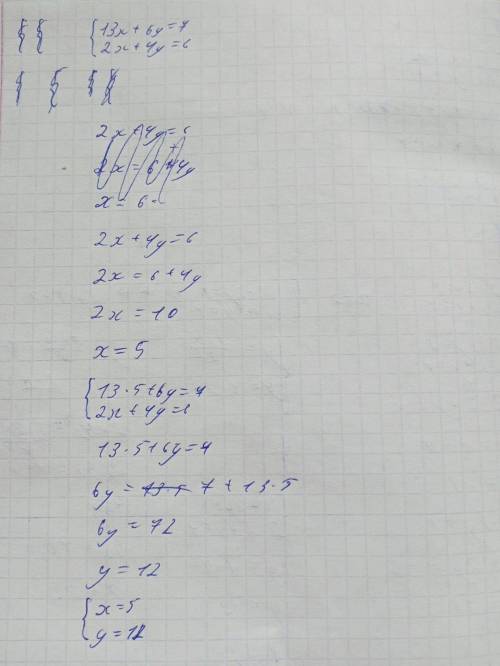 {13x + 6y = 7
{2x + 4y = 6
2x + 4y = 6
x = 6 -
2x + 4y = 6
2x = 6 + 4y
2x = 10
x = 5
{13 · 5 + 6y = 7
{2x + 4y = 6
13 · 5 + 6y = 7
6y = 7 + 13 · 5
6y = 72
y = 12
{x = 5
{y = 12